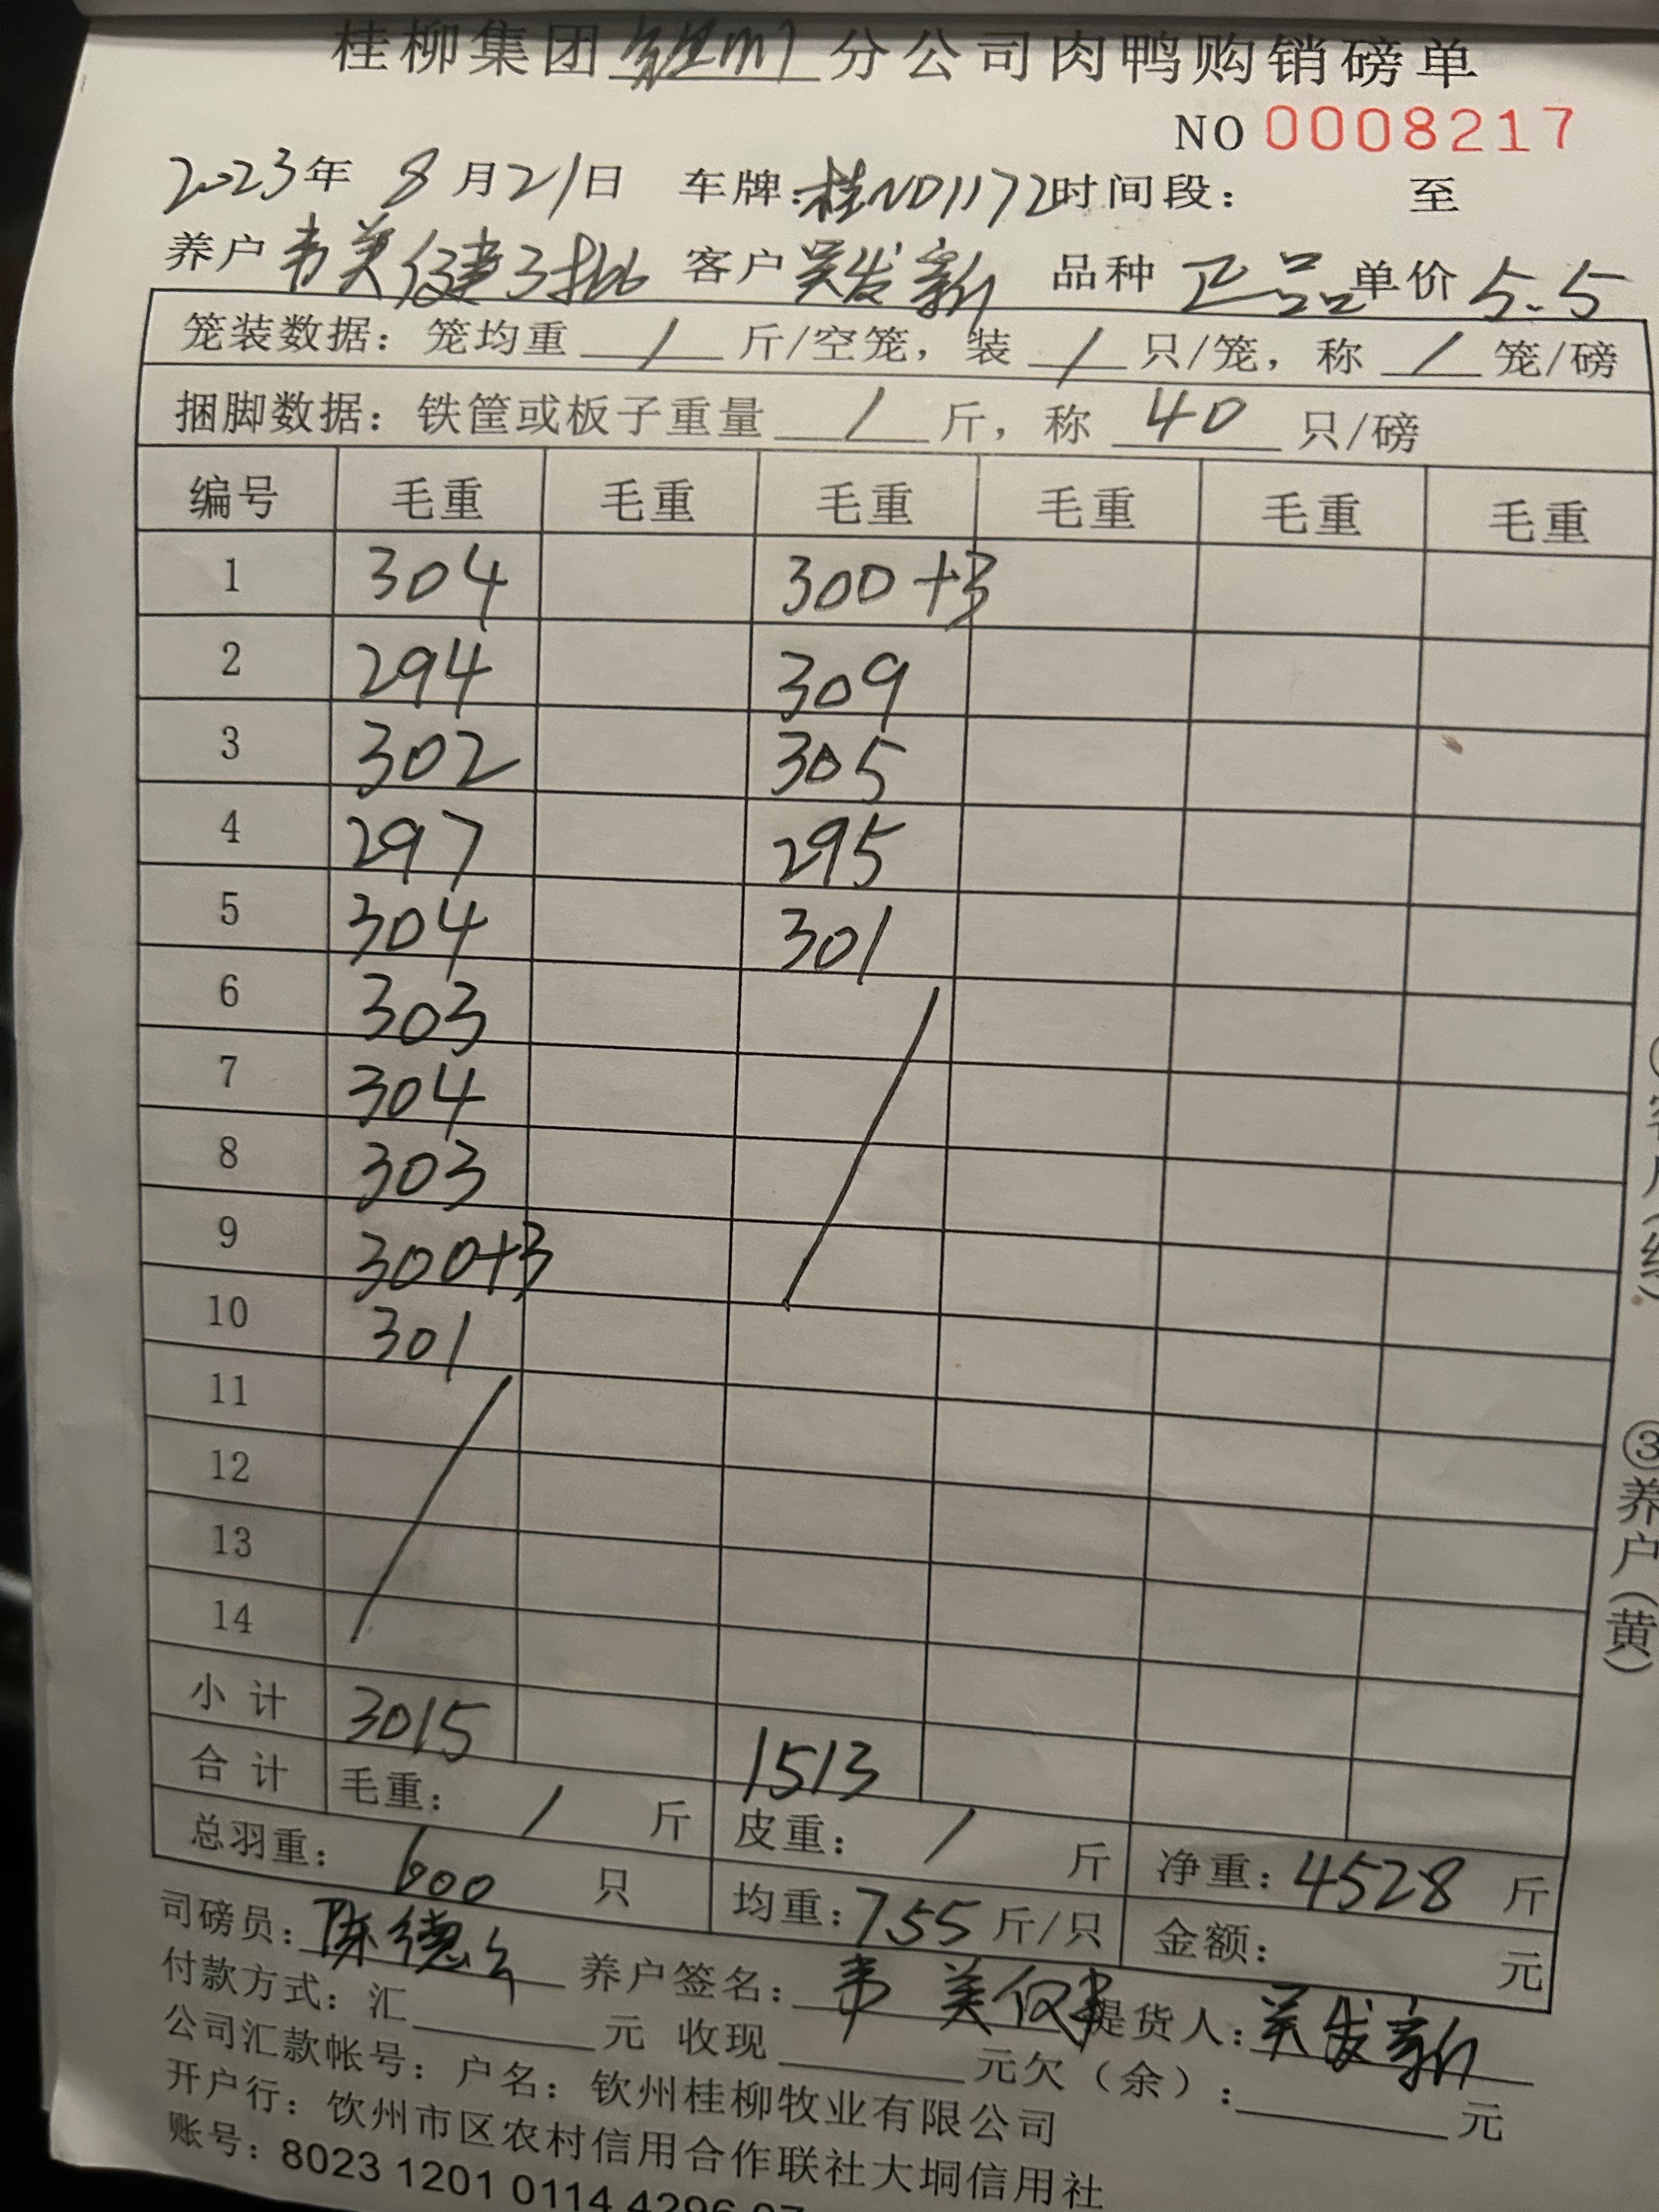 桂柳集团 分公司肉鸭购销磅单
NO 0008217
2023年 8月21日 车牌:桂ND1172时间段: 至
养户韦美健3批 客户吴发新 品种 正品 单价 5.5
笼装数据: 笼均重 / 斤/空笼, 装 / 只/笼, 称 / 笼/磅
捆脚数据: 铁筐或板子重量 / 斤, 称 40 只/磅
编号 毛重 毛重 毛重 毛重 毛重 毛重
1 304 300+3
2 294 309
3 302 305
4 297 295
5 304 301
6 303
7 304
8 303
9 300+3
10 301
11
12
13
14
小计 3015 1513
合计 毛重: / 斤 皮重: / 斤 净重: 4528 斤
总羽重: 600 只 均重: 755 斤/只 金额: 元
司磅员: 陈德 养户签名: 韦美健 提货人: 吴发新
付款方式: 汇 元 收现 元欠(余): 元
公司汇款帐号: 户名: 钦州桂柳牧业有限公司
开户行: 钦州市区农村信用合作联社大垌信用社
账号: 8023 1201 0114 4296
③养户(黄)